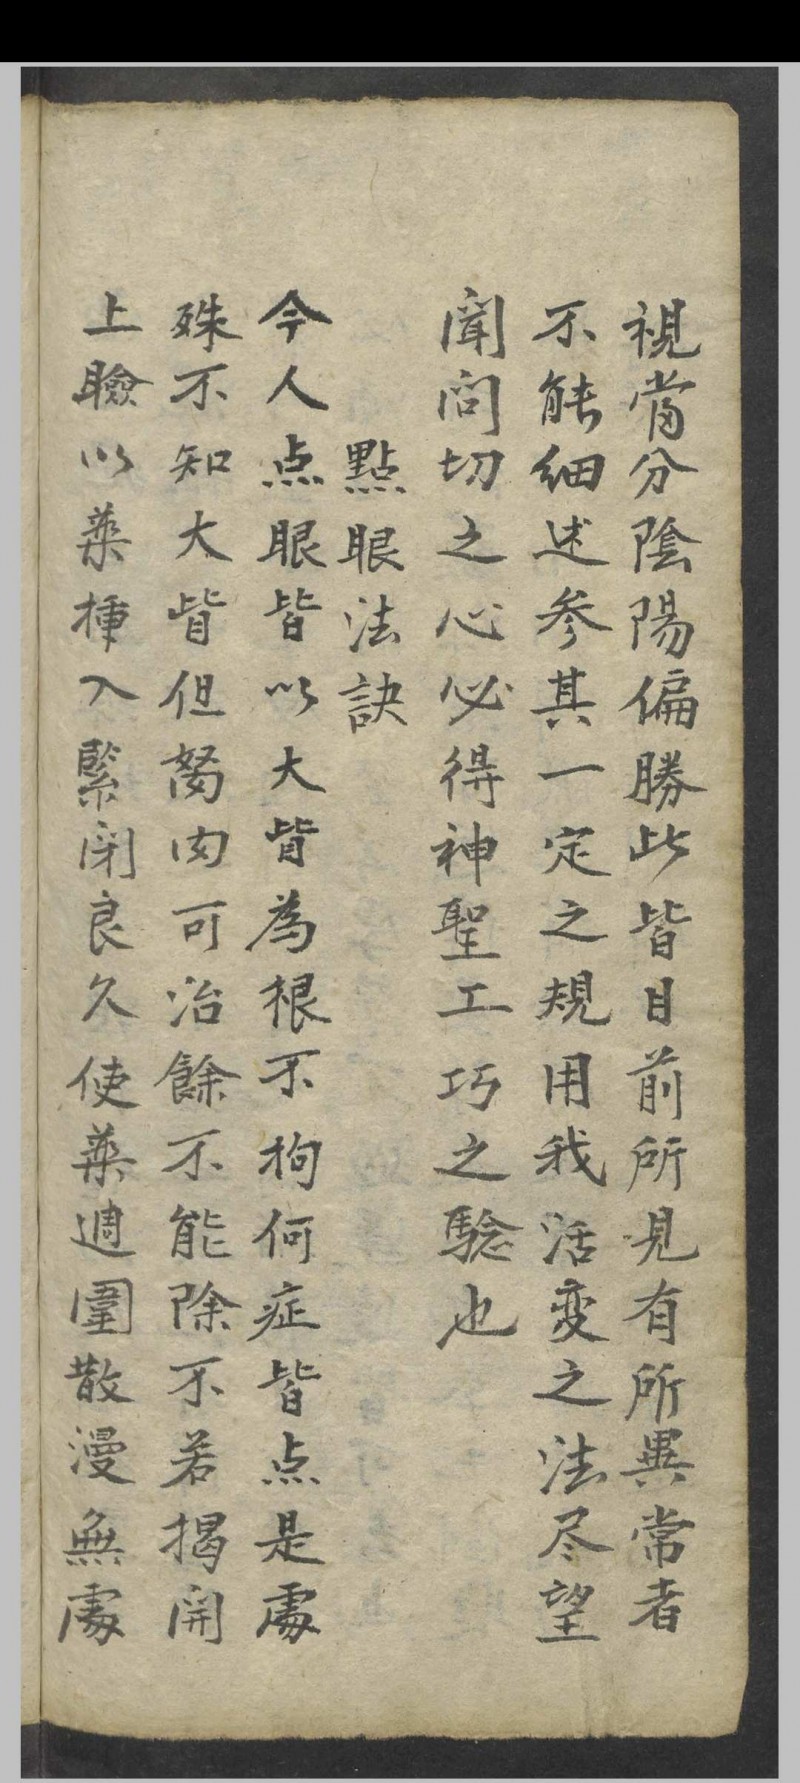 視當分陰陽偏勝此皆目前所見有所異常者
不能細述参其一定之規用我活变之法尽望
聞問切之心必得神聖工巧之騐也
點眼法訣
今人点眼皆以大眥為根不拘何症皆点是處
殊不知大眥但胬肉可治餘不能除不若揭開
上瞼以藥揷入緊闭良久使藥週圍散漫無處